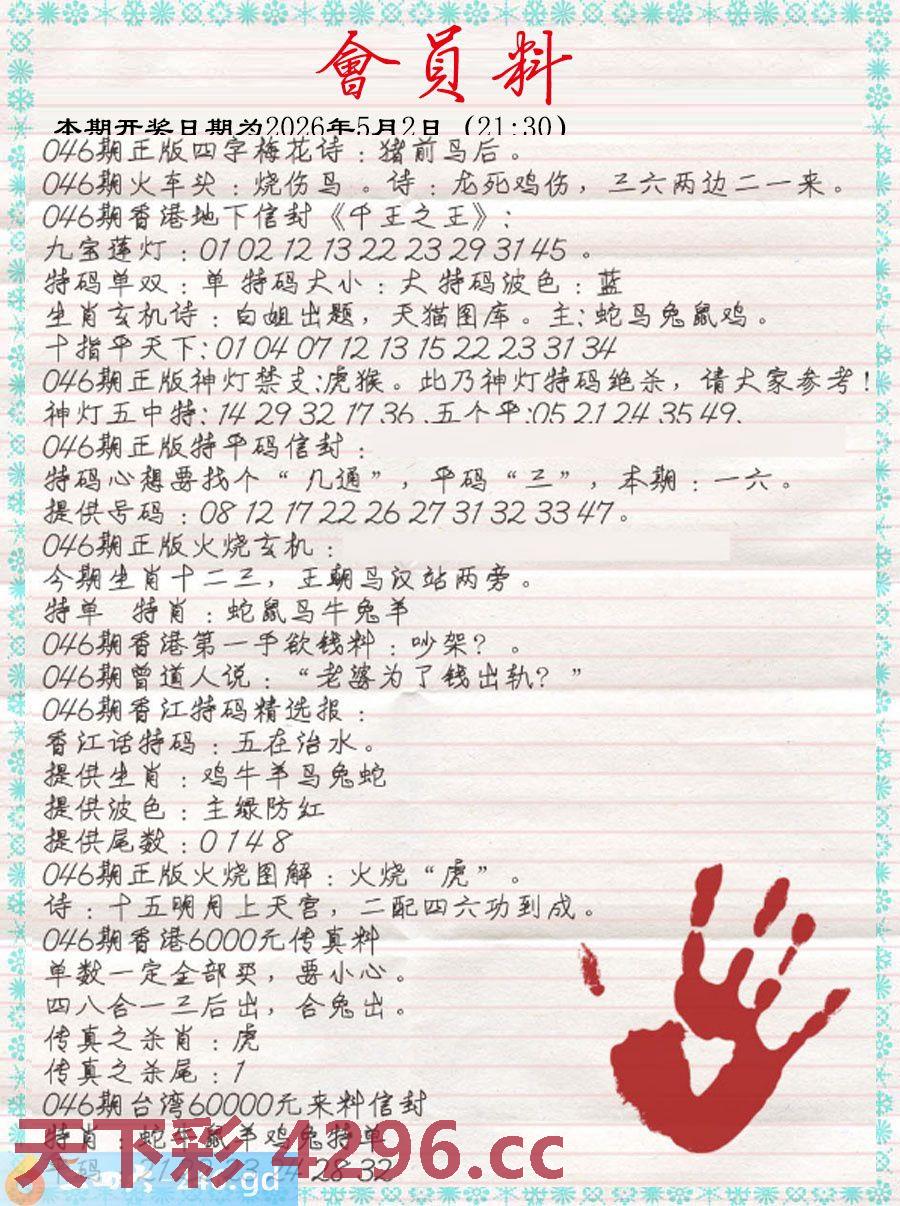 會員料
本期开奖日期为2026年5月2日（21:30）
046期正版四字梅花诗：猪前鸟后。
046期火车头：烧伤鸟 。诗：龙死鸡伤，三六两边二一来。
046期香港地下信封《千王之王》：
九宝莲灯：01 02 12 13 22 23 29 31 45 。
特码单双：单 特码大小：大 特码波色：蓝
生肖玄机诗：白姐出题，天猫图库。主：蛇鸟兔鼠鸡。
十指平天下：01 04 07 12 13 15 22 23 31 34
046期正版神灯禁支:虎猴。此乃神灯特码绝杀，请大家参考！
神灯五中特: 14 29 32 17 36 .五个平:05 21 24 35 49.
046期正版特平码信封：
特码心想要找个“ 几通”，平码“三”，本期：一六。
提供号码：08 12 17 22 26 27 31 32 33 47。
046期正版火烧玄机：
今期生肖十二三，王朝鸟汉站两旁。
特单 特肖：蛇鼠鸟牛兔羊
046期香港第一手欲钱料：吵架？。
046期曾道人说：“老婆为了钱出轨？”
046期香江特码精选报：
香江话特码：五在治水。
提供生肖：鸡牛羊鸟兔蛇
提供波色：主绿防红
提供尾数：0 1 4 8
046期正版火烧图解：火烧“虎”。
诗：十五明月上天宫，二配四六功到成。
046期香港6000元传真料
单数一定全部买，要小心。
四八合一三后出，合兔出。
传真之杀肖：虎
传真之杀尾：1
046期台湾60000元来料信封
特肖：蛇牛鼠羊鸡兔特单
天下彩 4296.cc
28 32
.gd